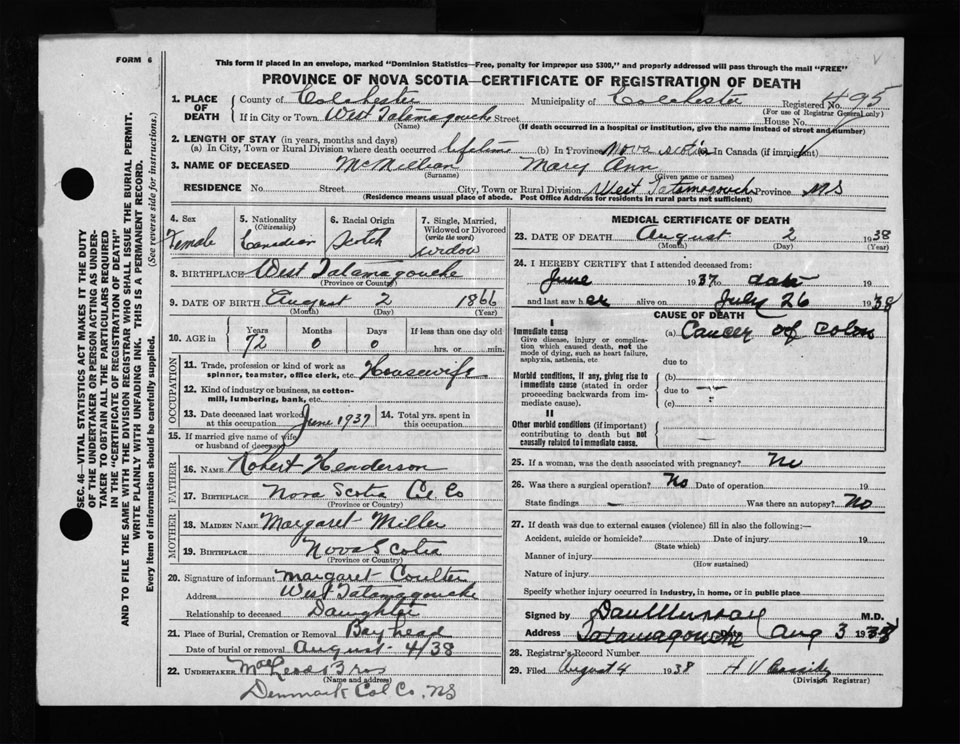 FORM 6
This form if placed in an envelope, marked "Dominion Statistics—Free, penalty for improper use $300," and properly addressed will pass through the mail "FREE"
PROVINCE OF NOVA SCOTIA—CERTIFICATE OF REGISTRATION OF DEATH
SEC. 46—VITAL STATISTICS ACT MAKES IT THE DUTY
OF THE UNDERTAKER OR PERSON ACTING AS UNDER-
TAKER TO OBTAIN ALL THE PARTICULARS REQUIRED
IN THE "CERTIFICATE OF REGISTRATION OF DEATH"
AND TO FILE THE SAME WITH THE DIVISION REGISTRAR WHO SHALL ISSUE THE BURIAL PERMIT.
WRITE PLAINLY WITH UNFADING INK. THIS IS A PERMANENT RECORD.
Every item of information should be carefully supplied. (See reverse side for instructions.)
1. PLACE OF DEATH County of Colchester Municipality of Colchester Registered No. 495
(For use of Registrar General only)
If in City or Town West Tatamagouche Street House No.
(Name) (If death occurred in a hospital or institution, give the name instead of street and number)
2. LENGTH OF STAY (in years, months and days)
(a) In City, Town or Rural Division where death occurred lifetime (b) In Province Nova Scotia In Canada (if immigrant)
3. NAME OF DECEASED McMillan Mary Ann
(Surname) (Given name or names)
RESIDENCE No. Street City, Town or Rural Division West Tatamagouche Province NS
(Residence means usual place of abode. Post Office Address for residents in rural parts not sufficient)
4. Sex Female
5. Nationality (Citizenship) Canadian
6. Racial Origin Scotch
7. Single, Married, Widowed or Divorced (write the word) widow
8. BIRTHPLACE West Tatamagouche
(Province or Country)
9. DATE OF BIRTH August 2 1866
(Month) (Day) (Year)
10. AGE in Years 72 Months 0 Days 0 If less than one day old hrs. or min.
OCCUPATION
11. Trade, profession or kind of work as spinner, teamster, office clerk, etc. Housewife
12. Kind of industry or business, as cotton-mill, lumbering, bank, etc.
13. Date deceased last worked at this occupation June 1937
14. Total yrs. spent in this occupation
15. If married give name of wife or husband of deceased
FATHER
16. NAME Robert Henderson
17. BIRTHPLACE Nova Scotia Col Co
(Province or Country)
MOTHER
18. MAIDEN NAME Margaret Miller
19. BIRTHPLACE Nova Scotia
(Province or Country)
20. Signature of informant Margaret Coulter
Address West Tatamagouche
Relationship to deceased Daughter
21. Place of Burial, Cremation or Removal Bay head
Date of burial or removal August 4/38
22. UNDERTAKER MacLeod Bros
(Name and address)
Denmark Col Co, NS
MEDICAL CERTIFICATE OF DEATH
23. DATE OF DEATH August 2 1938
(Month) (Day) (Year)
24. I HEREBY CERTIFY that I attended deceased from:
June 1937 to date 19
and last saw her alive on July 26 1938
CAUSE OF DEATH
I
Immediate cause (a) Cancer of colon
Give disease, injury or complication which caused death, not the mode of dying, such as heart failure, asphyxia, asthenia, etc.
due to
Morbid conditions, if any, giving rise to immediate cause (stated in order proceeding backwards from immediate cause).
(b)
due to
(c)
II
Other morbid conditions (if important) contributing to death but not causally related to immediate cause.
25. If a woman, was the death associated with pregnancy? No
26. Was there a surgical operation? No Date of operation 19
State findings – Was there an autopsy? No
27. If death was due to external causes (violence) fill in also the following:—
Accident, suicide or homicide? Date of injury 19
(State which)
Manner of injury
(How sustained)
Nature of injury
Specify whether injury occurred in industry, in home, or in public place
Signed by Dan Murray M.D.
Address Tatamagouche Aug 3 1938
28. Registrar's Record Number
29. Filed August 4 1938 H V Cassidy
(Division Registrar)